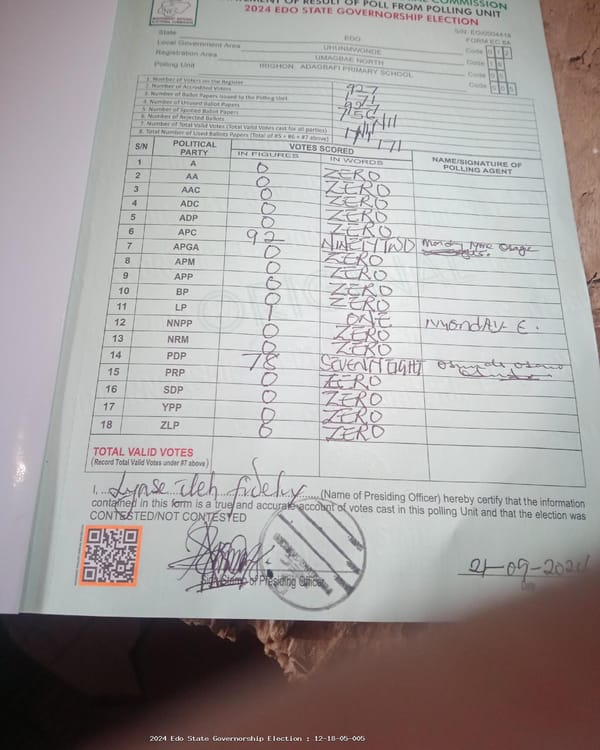 COMMISSION
OF RESULT OF POLL FROM POLLING UNIT
2024 EDO STATE GOVERNORSHIP ELECTION
FORM EC 8A
State EDO Code 1 2
Local Government Area UHUNMWONDE Code 1 8
Registration Area UMAGBAE NORTH Code 0 5
Polling Unit IRIGHON, ADAGBAFI PRIMARY SCHOOL Code 0 0 5
1. Number of Voters on the Register 927
2. Number of Accredited Voters 171
3. Number of Ballot Papers Issued to the Polling Unit 927
4. Number of Unused Ballot Papers 756
5. Number of Spoiled Ballot Papers
6. Number of Rejected Ballots
7. Number of Total Valid Votes (Total Valid Votes cast for all parties)
8. Total Number of Used Ballots Papers (Total of #5 + #6 + #7 above) 171
S/N POLITICAL PARTY VOTES SCORED NAME/SIGNATURE OF POLLING AGENT
IN FIGURES IN WORDS
1 A 0 ZERO
2 AA 0 ZERO
3 AAC 0 ZERO
4 ADC 0 ZERO
5 ADP 0 ZERO
6 APC 92 NINETY TWO Monday
7 APGA 0 ZERO
8 APM 0 ZERO
9 APP 0 ZERO
10 BP 0 ZERO
11 LP 1 ONE E.
12 NNPP 0 ZERO
13 NRM 0 ZERO
14 PDP 78 SEVENTY EIGHT
15 PRP 0 ZERO
16 SDP 0 ZERO
17 YPP 0 ZERO
18 ZLP 0 ZERO
TOTAL VALID VOTES
(Record Total Valid Votes under #7 above)
I, (Name of Presiding Officer) hereby certify that the information
contained in this form is a true and accurate account of votes cast in this polling Unit and that the election was
CONTESTED/NOT CONTESTED
of Presiding Officer
21-09-2024
2024 Edo State Governorship Election : 12-18-05-005